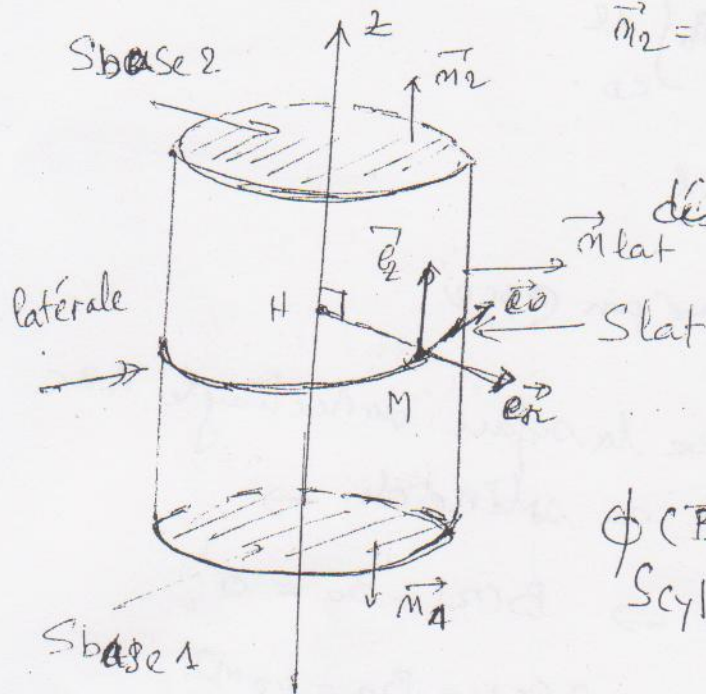 z
n⃗₂ =
Sbase2
n⃗₂
e⃗z
n⃗ lat
latérale
H
e⃗θ
Slat
M
e⃗r
n⃗₁
Scyl
Sbase1